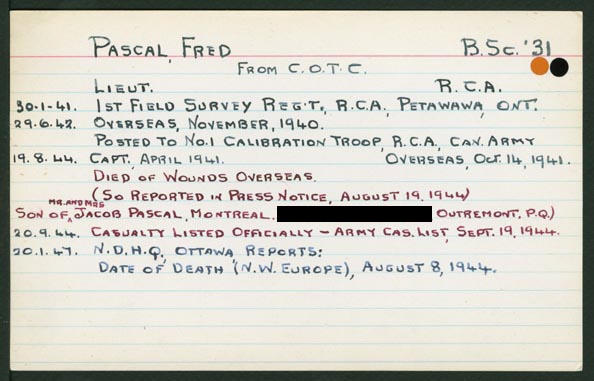 PASCAL, FRED B.SC. '31
FROM C.O.T.C.
LIEUT. R.C.A.
30.1-41. 1ST FIELD SURVEY REG'T., R.C.A., PETAWAWA, ONT.
29.6.42. OVERSEAS, NOVEMBER, 1940.
POSTED TO NO.1 CALIBRATION TROOP, R.C.A., CAN. ARMY
19.8.44. CAPT., APRIL 1941. OVERSEAS, OCT. 14, 1941.
DIED OF WOUNDS OVERSEAS.
(SO REPORTED IN PRESS NOTICE, AUGUST 19, 1944)
SON OF MR. AND MRS JACOB PASCAL, MONTREAL. OUTREMONT, P.Q.)
20.9.44. CASUALTY LISTED OFFICIALLY - ARMY CAS. LIST, SEPT. 19, 1944.
20.1.47. N.D.H.Q., OTTAWA, REPORTS:
DATE OF DEATH (N.W. EUROPE), AUGUST 8, 1944.